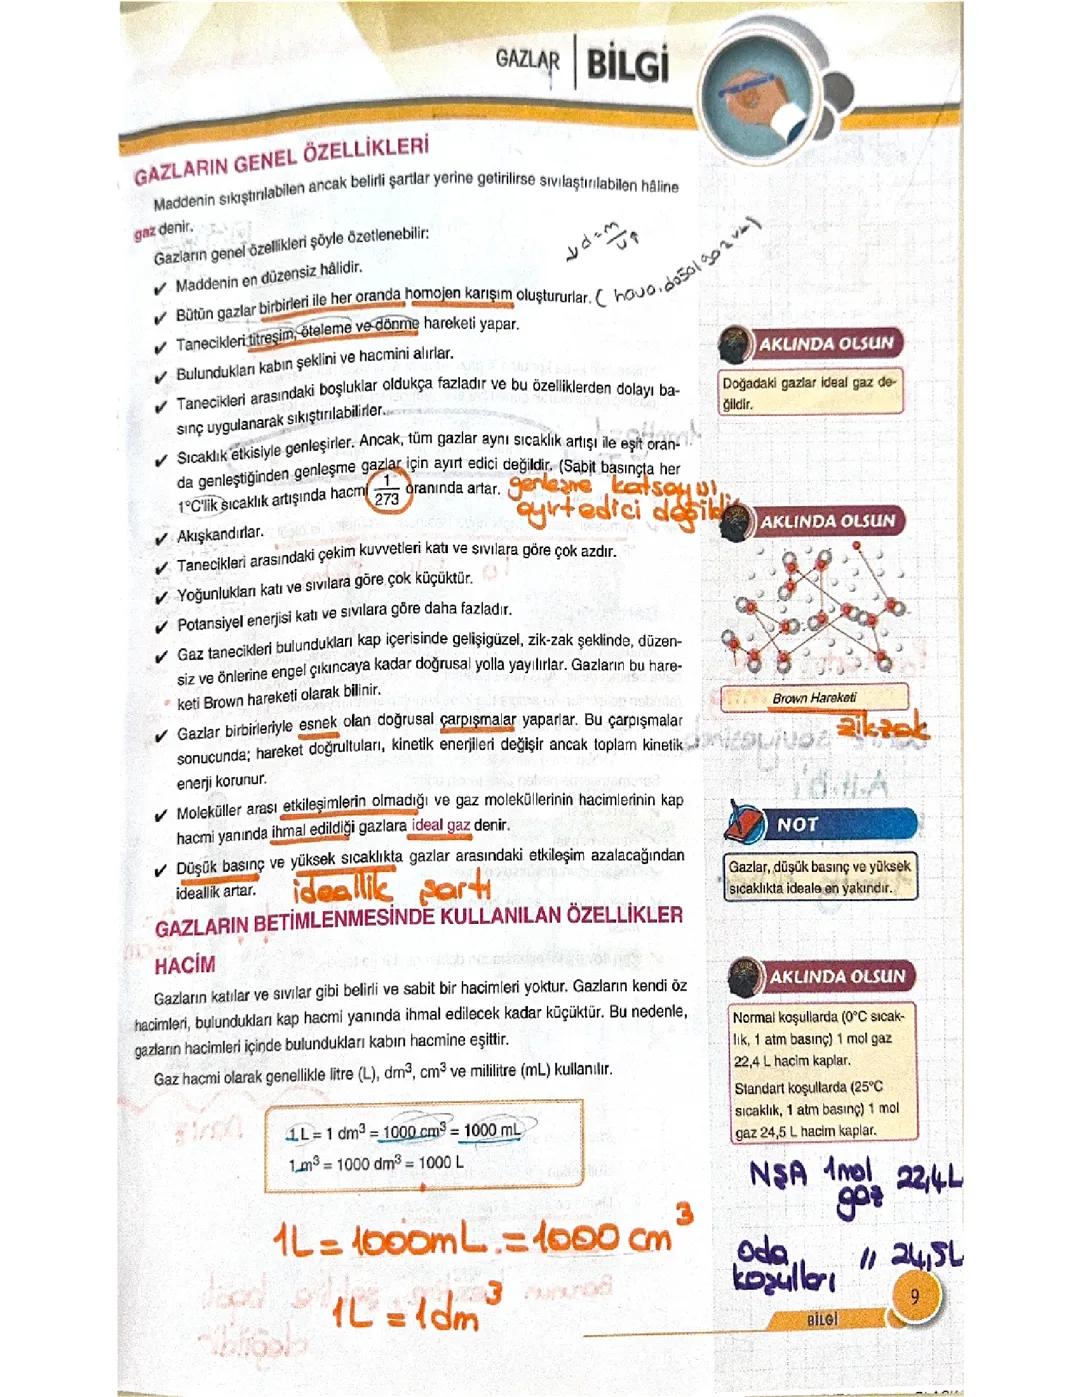 GAZLAR | BİLGİ
GAZLARIN GENEL ÖZELLİKLERİ
Maddenin sıkıştırılabilen ancak belirli şartlar yerine getirilirse sıvılaştırılabilen hâline
gaz denir.
Gazların genel özellikleri şöyle özetlenebilir:
d = m/v
✓ Maddenin en düzensiz hâlidir.
✓ Bütün gazlar birbirleri ile her oranda homojen karışım oluştururlar. (hava, doğal gaz
✓ Tanecikleri titreşim, öteleme ve dönme hareketi yapar.
✓ Bulundukları kabın şeklini ve hacmini alırlar.
✓ Tanecikleri arasındaki boşluklar oldukça fazladır ve bu özelliklerden dolayı ba-
sınç uygulanarak sıkıştırılabilirler.
✓ Sıcaklık etkisiyle genleşirler. Ancak, tüm gazlar aynı sıcaklık artışı ile eşit oran-
da genleştiğinden genleşme gazlar için ayırt edici değildir. (Sabit basınçta her
1°C'lik sıcaklık artışında hacmi 1/273 oranında artar. genleşme katsayısı
ayırt edici değildir
✓ Akışkandırlar.
✓ Tanecikleri arasındaki çekim kuvvetleri katı ve sıvılara göre çok azdır.
✓ Yoğunlukları katı ve sıvılara göre çok küçüktür.
✓ Potansiyel enerjisi katı ve sıvılara göre daha fazladır.
✓ Gaz tanecikleri bulundukları kap içerisinde gelişigüzel, zik-zak şeklinde, düzen-
siz ve önlerine engel çıkıncaya kadar doğrusal yolla yayılırlar. Gazların bu hare-
keti Brown hareketi olarak bilinir.
✓ Gazlar birbirleriyle esnek olan doğrusal çarpışmalar yaparlar. Bu çarpışmalar
sonucunda; hareket doğrultuları, kinetik enerjileri değişir ancak toplam kinetik
enerji korunur.
✓ Moleküller arası etkileşimlerin olmadığı ve gaz moleküllerinin hacimlerinin kap
hacmi yanında ihmal edildiği gazlara ideal gaz denir.
✓ Düşük basınç ve yüksek sıcaklıkta gazlar arasındaki etkileşim azalacağından
ideallik artar. ideallik şartı
GAZLARIN BETİMLENMESİNDE KULLANILAN ÖZELLİKLER
HACİM
Gazların katılar ve sıvılar gibi belirli ve sabit bir hacimleri yoktur. Gazların kendi öz
hacimleri, bulundukları kap hacmi yanında ihmal edilecek kadar küçüktür. Bu nedenle,
gazların hacimleri içinde bulundukları kabın hacmine eşittir.
Gaz hacmi olarak genellikle litre (L), dm³, cm³ ve mililitre (mL) kullanılır.
1 L = 1 dm³ = 1000 cm³ = 1000 mL
1 m³ = 1000 dm³ = 1000 L
1L = 1000mL = 1000 cm³
1L = 1dm³
AKLINDA OLSUN
Doğadaki gazlar ideal gaz de-
ğildir.
AKLINDA OLSUN
Brown Hareketi
zikzak
NOT
Gazlar, düşük basınç ve yüksek
sıcaklıkta ideale en yakındır.
AKLINDA OLSUN
Normal koşullarda (0°C sıcak-
lık, 1 atm basınç) 1 mol gaz
22,4 L hacim kaplar.
Standart koşullarda (25°C
sıcaklık, 1 atm basınç) 1 mol
gaz 24,5 L hacim kaplar.
NŞA 1mol gaz 22,4L
Oda koşulları " 24,5L
9
BİLGİ